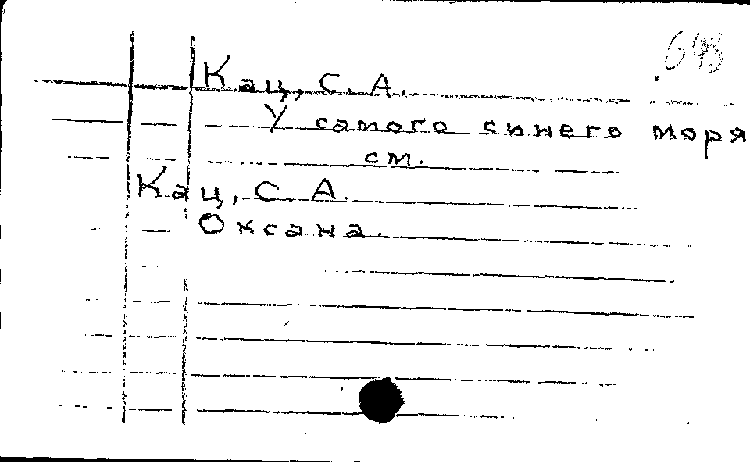 648
Кац, С. А.
У самого синего моря
см.
Кац, С. А.
Оксана.